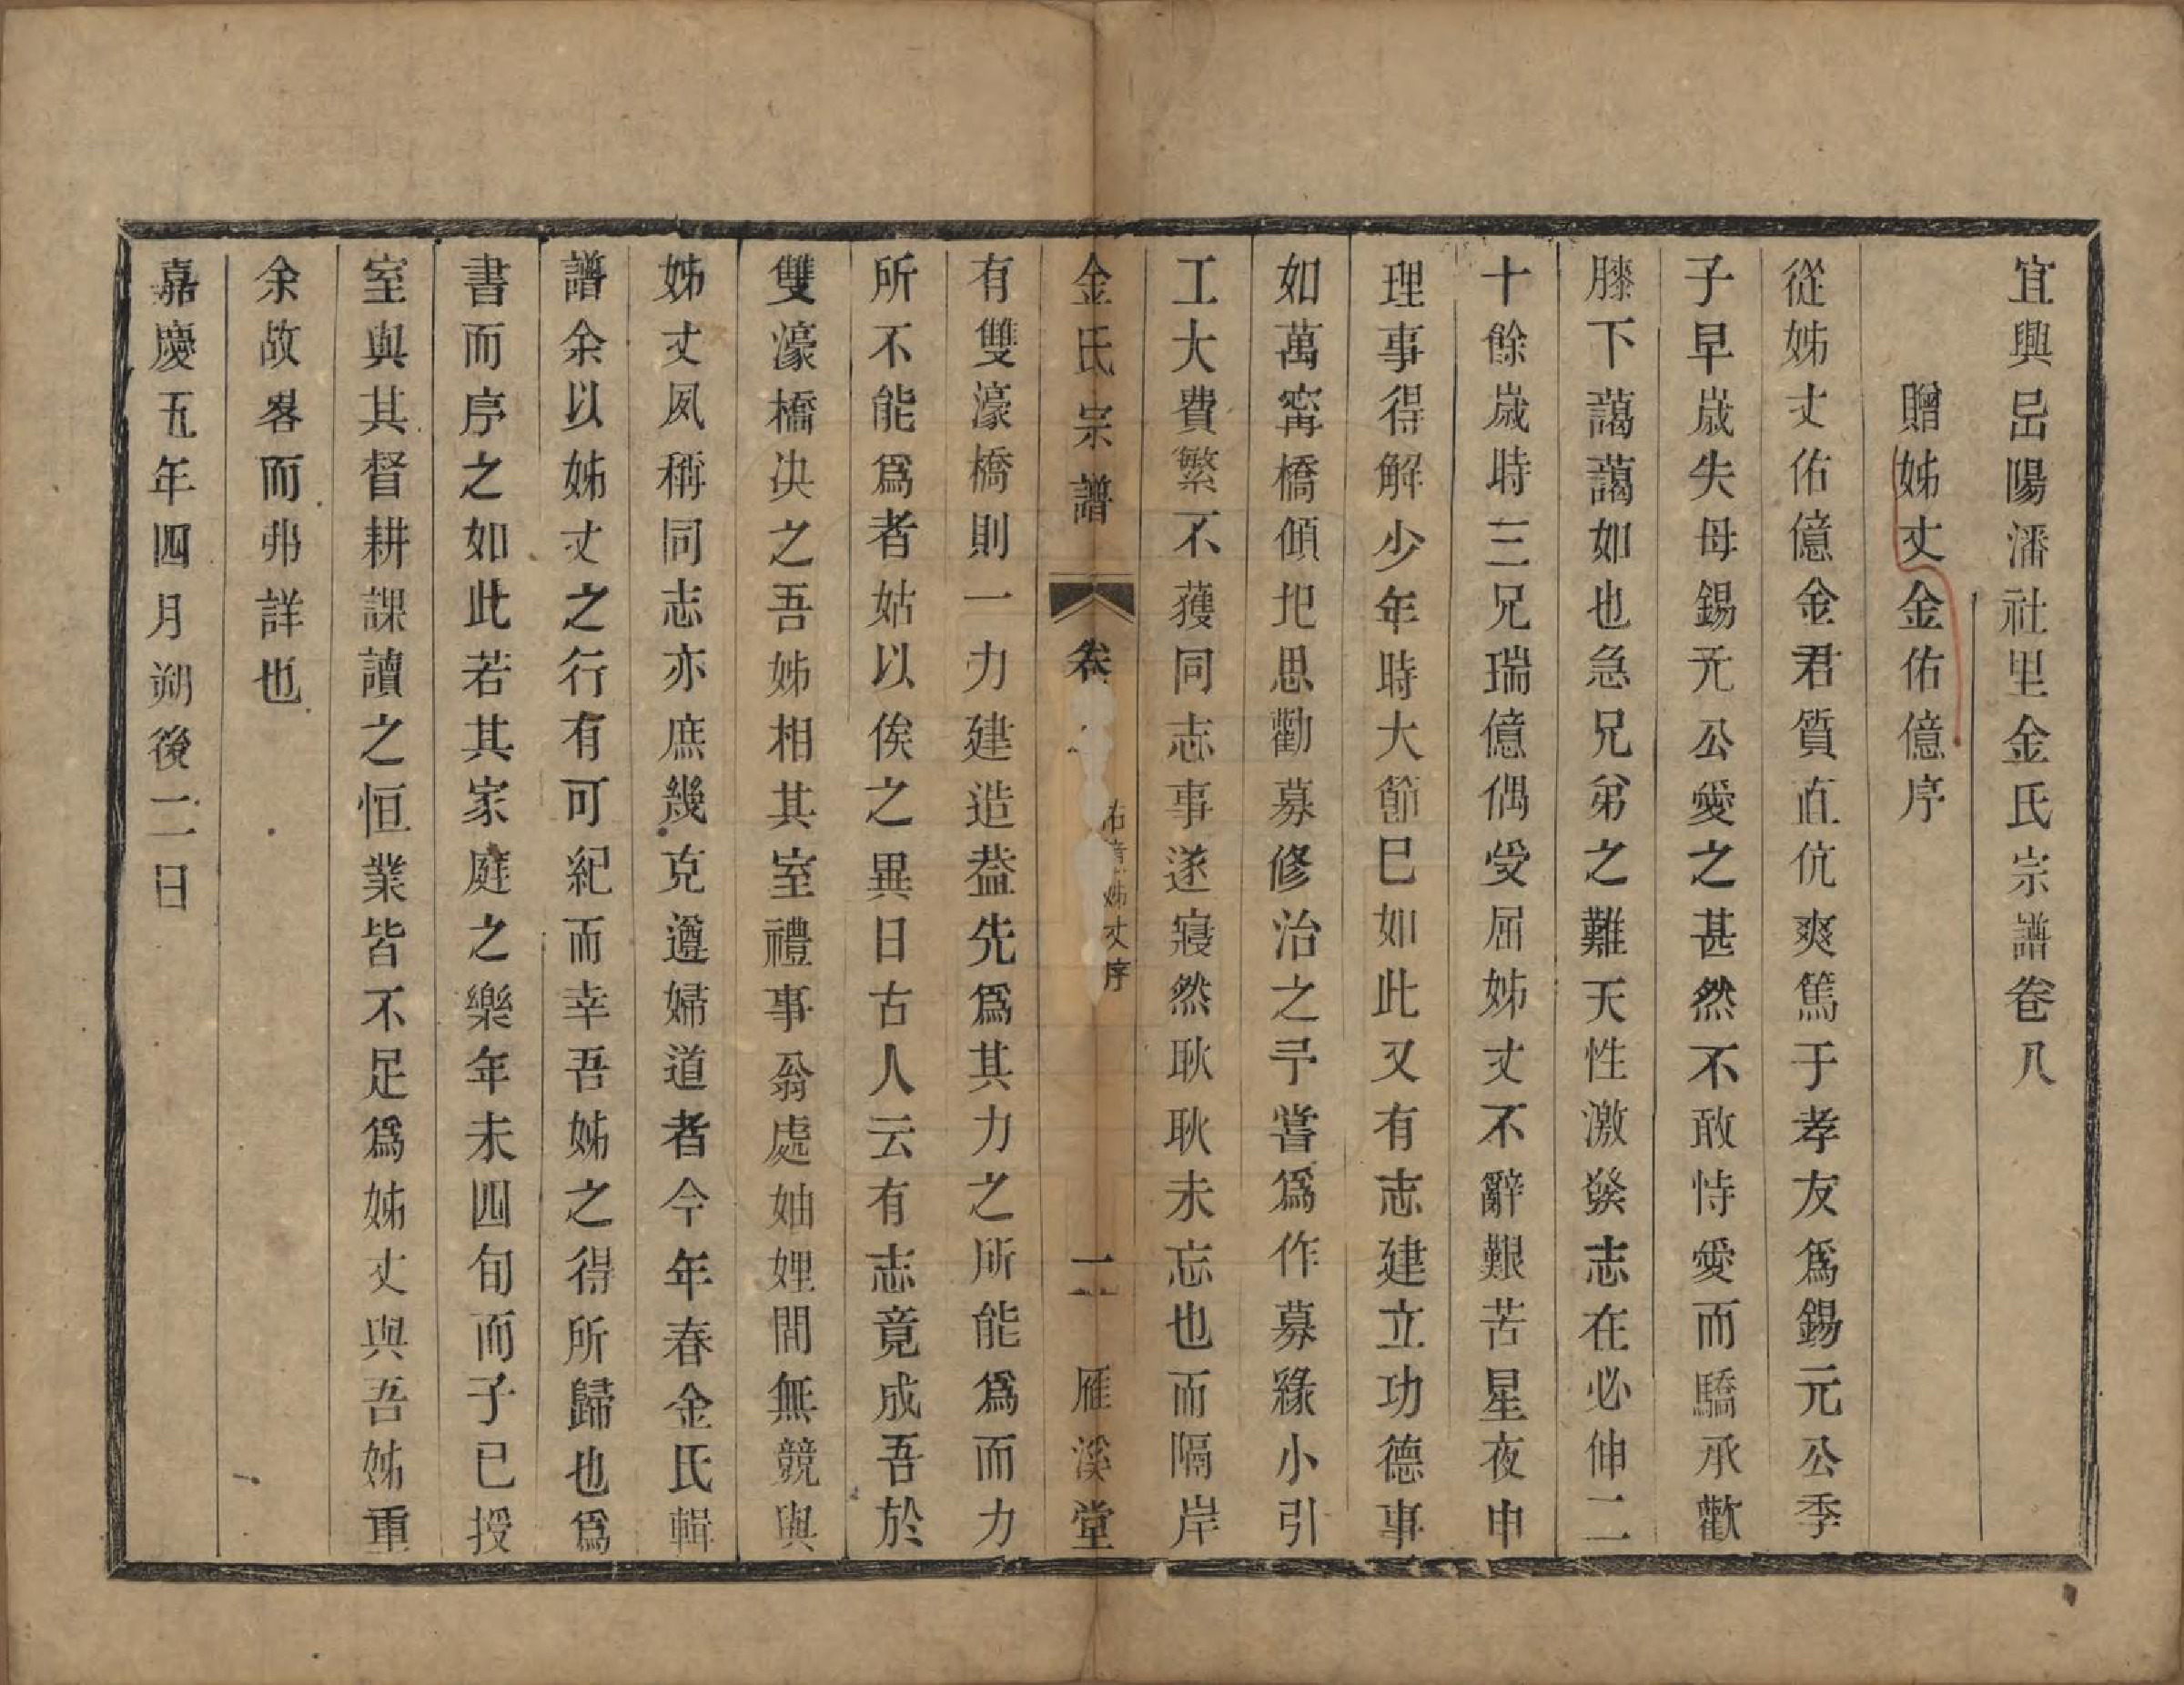 宜興岊陽潘社里金氏宗譜卷八
贈姊丈金佑億序
從姊丈佑億金君質直伉爽篤于孝友爲錫元公季
子早歲失母錫元公愛之甚然不敢恃愛而驕承歡
膝下藹藹如也急兄弟之難天性激發志在必伸二
十餘歲時三兄瑞億偶受屈姊丈不辭艱苦星夜申
理事得解少年時大節已如此又有志建立功德事
如萬甯橋傾圯思勸募修治之予嘗爲作募緣小引
工大費繁不獲同志事遂寢然耿耿未忘也而隔岸
金氏宗譜 卷 佑億姊丈序 一 雁溪堂
有雙濠橋則一力建造葢先爲其力之所能爲而力
所不能爲者姑以俟之異日古人云有志竟成吾於
雙濠橋决之吾姊相其室禮事翁處妯娌間無競與
姊丈夙稱同志亦庶幾克遵婦道者今年春金氏輯
譜余以姊丈之行有可紀而幸吾姊之得所歸也爲
書而序之如此若其家庭之樂年未四旬而子已授
室與其督耕課讀之恒業皆不足爲姊丈與吾姊重
余故畧而弗詳也
嘉慶五年四月朔後二日